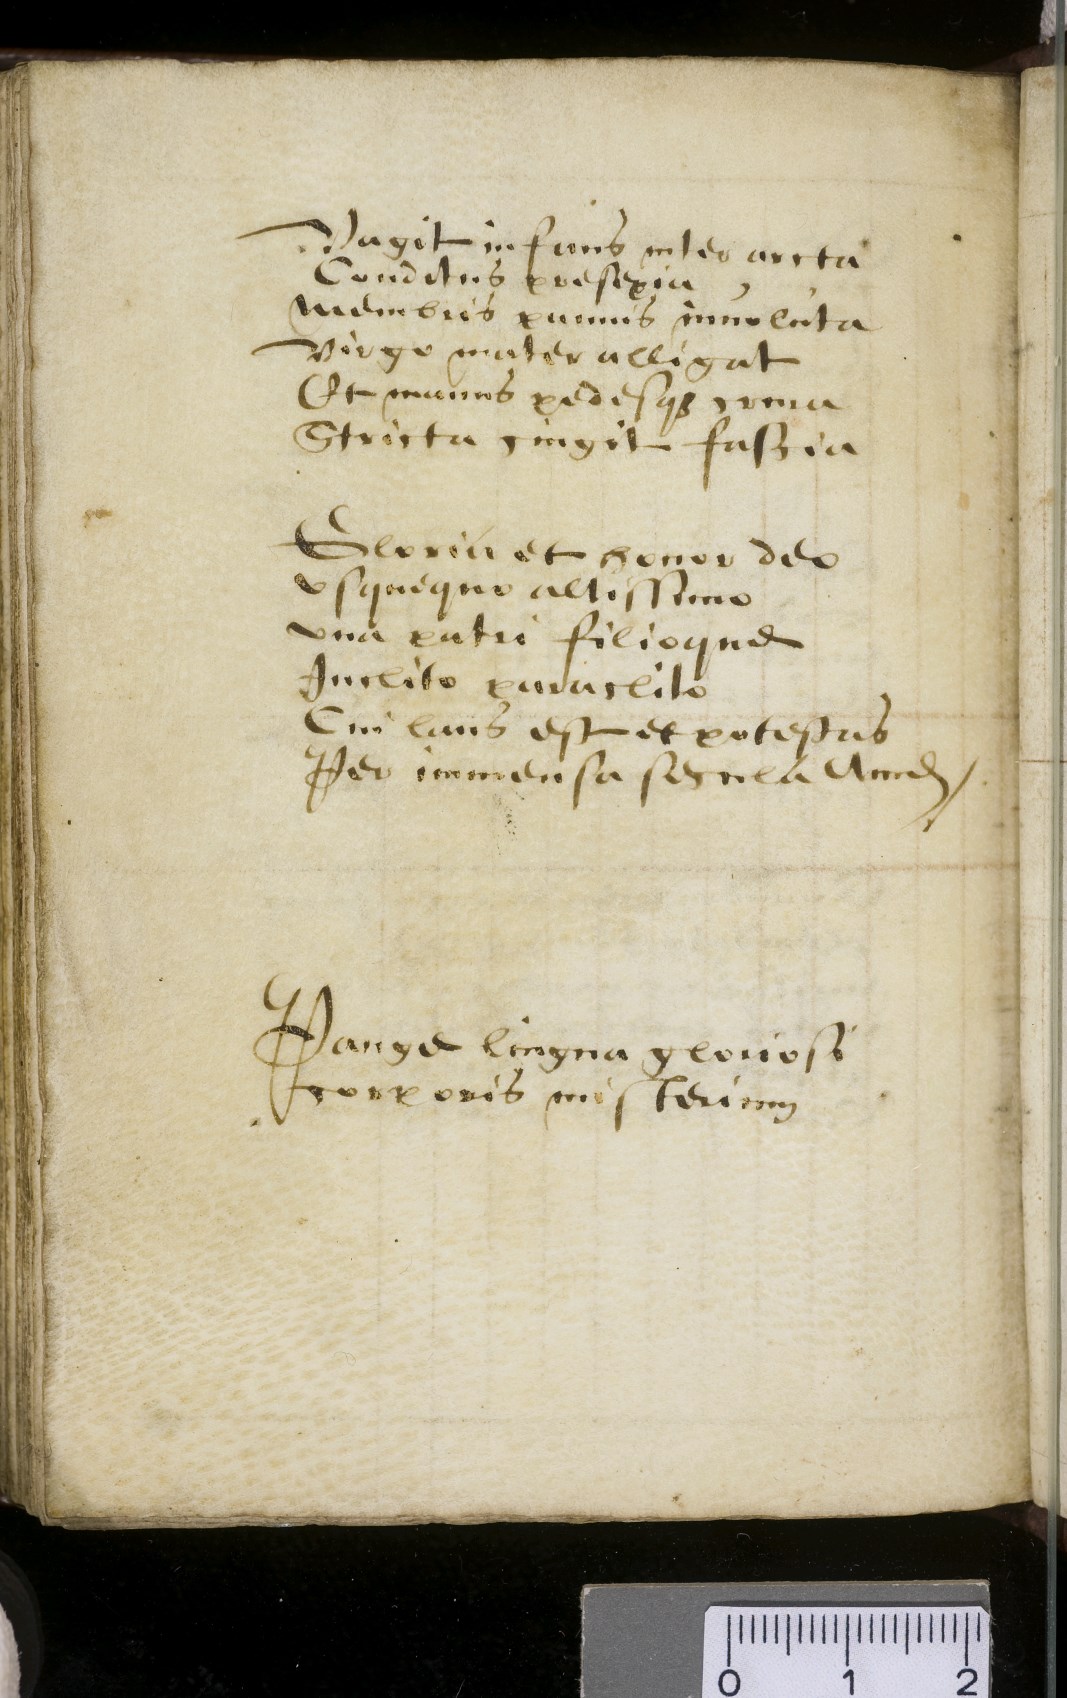 Vagit infans inter arcta
Conditus presepia
Membris pannis inuoluta
Virgo mater alligat
Et manus pedesqȝ crura
Stricta cingit fascia
Gloria et honor deo
vsquequo altissimo
vna patri filioque
Inclito paraclito
Cui laus est et potestas
Per immensa secula Amen
Pange lingua gloriosi
corporis misterium
0 1 2